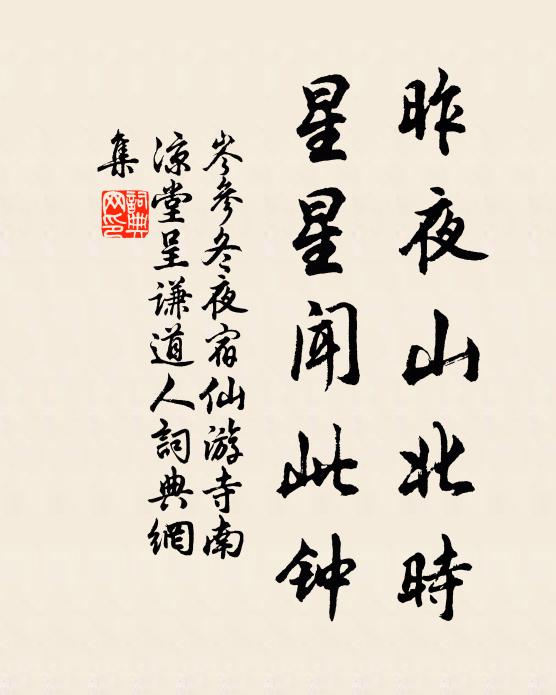 昨夜山北時
星星聞此钟
岑參冬夜宿仙游寺南
涼堂呈谦道人詞典網
集
詞典
网印